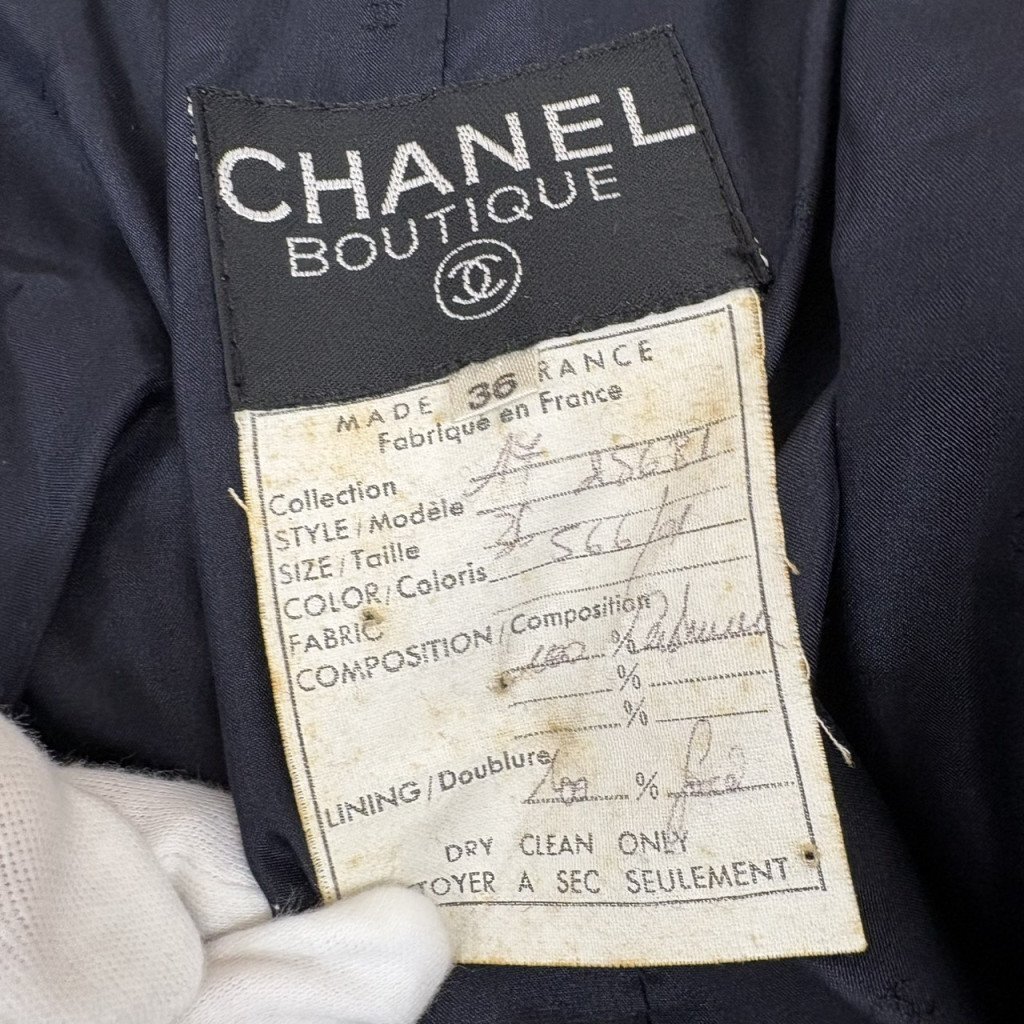 CHANEL
BOUTIQUE
MADE 36 RANCE
Fabriqué en France
Collection
STYLE/Modèle
SIZE/Taille
COLOR/Coloris 566/01
FABRIC
COMPOSITION/Composition
100 %
%
%
LINING/Doublure 100 %
DRY CLEAN ONLY
TOYER A SEC SEULEMENT